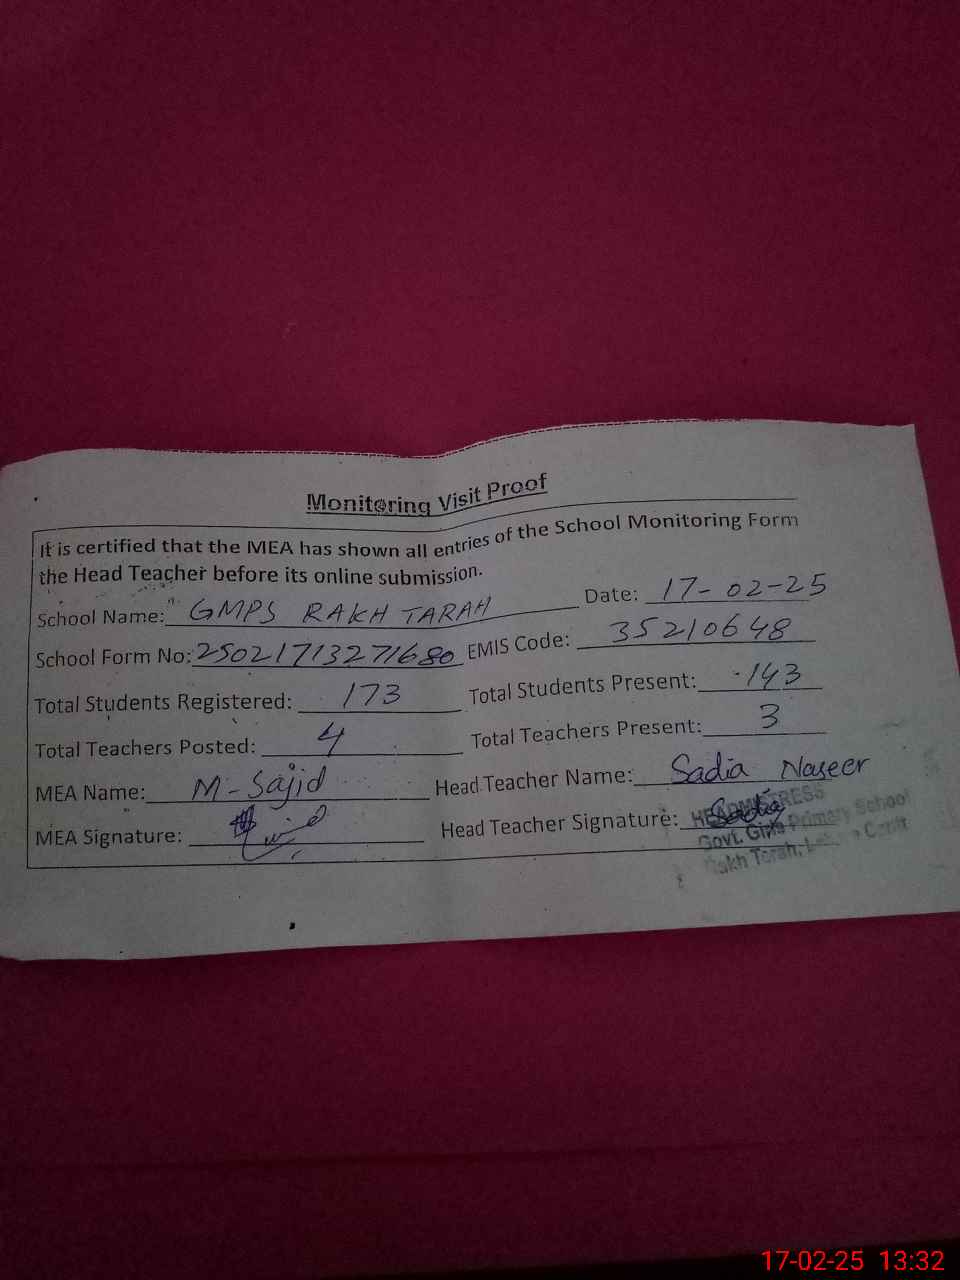 Monitoring Visit Proof
It is certified that the MEA has shown all entries of the School Monitoring Form
the Head Teacher before its online submission.
School Name: GMPS RAKH TARAH Date: 17-02-25
School Form No: 25021713271680 EMIS Code: 35210648
Total Students Registered: 173 Total Students Present: 143
Total Teachers Posted: 4 Total Teachers Present: 3
MEA Name: M-Sajid Head Teacher Name: Sadia Naseer
MEA Signature: Head Teacher Signature: Sadia
HEADMISTRESS
Govt. Girls Primary School
Rakh Torah, Cantt
17-02-25 13:32